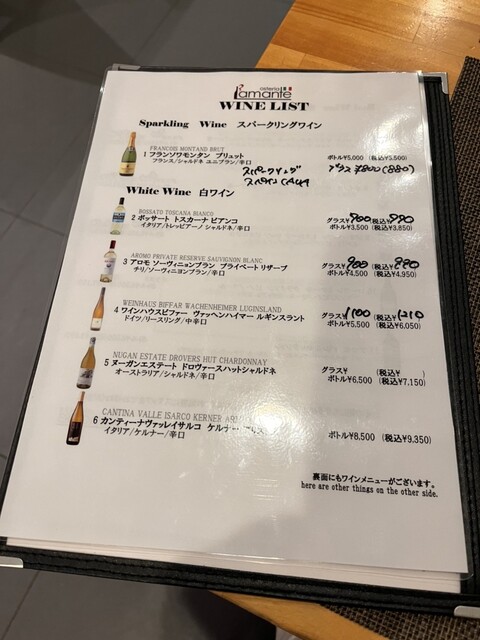 osteria
l'amante
WINE LIST
Sparkling Wine スパークリングワイン
FRANCOIS MONTAND BRUT
1 フランソワモンタン ブリュット ボトル¥5,000 (税込¥5,500)
フランス/シャルドネ ユニブラン/辛口
スパークリング グラス ¥800(880)
スペイン CAVA
White Wine 白ワイン
BOSSATO TOSCANA BIANCO
2 ボッサート トスカーナ ビアンコ グラス¥900(税込¥990
イタリア/トレッビアーノ シャルドネ/辛口 ボトル¥3,500 (税込¥3,850)
AROMO PRIVATE RESERVE SAUVIGNON BLANC
3 アロモ ソーヴィニョンブラン プライベートリザーブ グラス¥ (税込¥
チリ/ソーヴィニヨンブラン/辛口 ボトル¥4,500 (税込¥4,950)
WEINHAUS BIFFAR WACHENHEIMER LUGINSLAND
4 ワインハウスビファー ヴァッヘンハイマー ルギンスラント グラス¥1100 (税込¥1210
ドイツ/リースリング/中辛口 ボトル¥5,500 (税込¥6,050)
NUGAN ESTATE DROVERS HUT CHARDONNAY
5 ヌーガンエステート ドロヴァースハットシャルドネ グラス¥ (税込¥ )
オーストラリア/シャルドネ/辛口 ボトル¥6,500 (税込¥7,150)
CANTINA VALLE ISARCO KERNER
6 カンティーナヴァッレイサルコ ケルナー
イタリア/ケルナー/辛口 ボトル¥8,500 (税込¥9,350)
裏面にもワインメニューがございます。
here are other things on the other side.